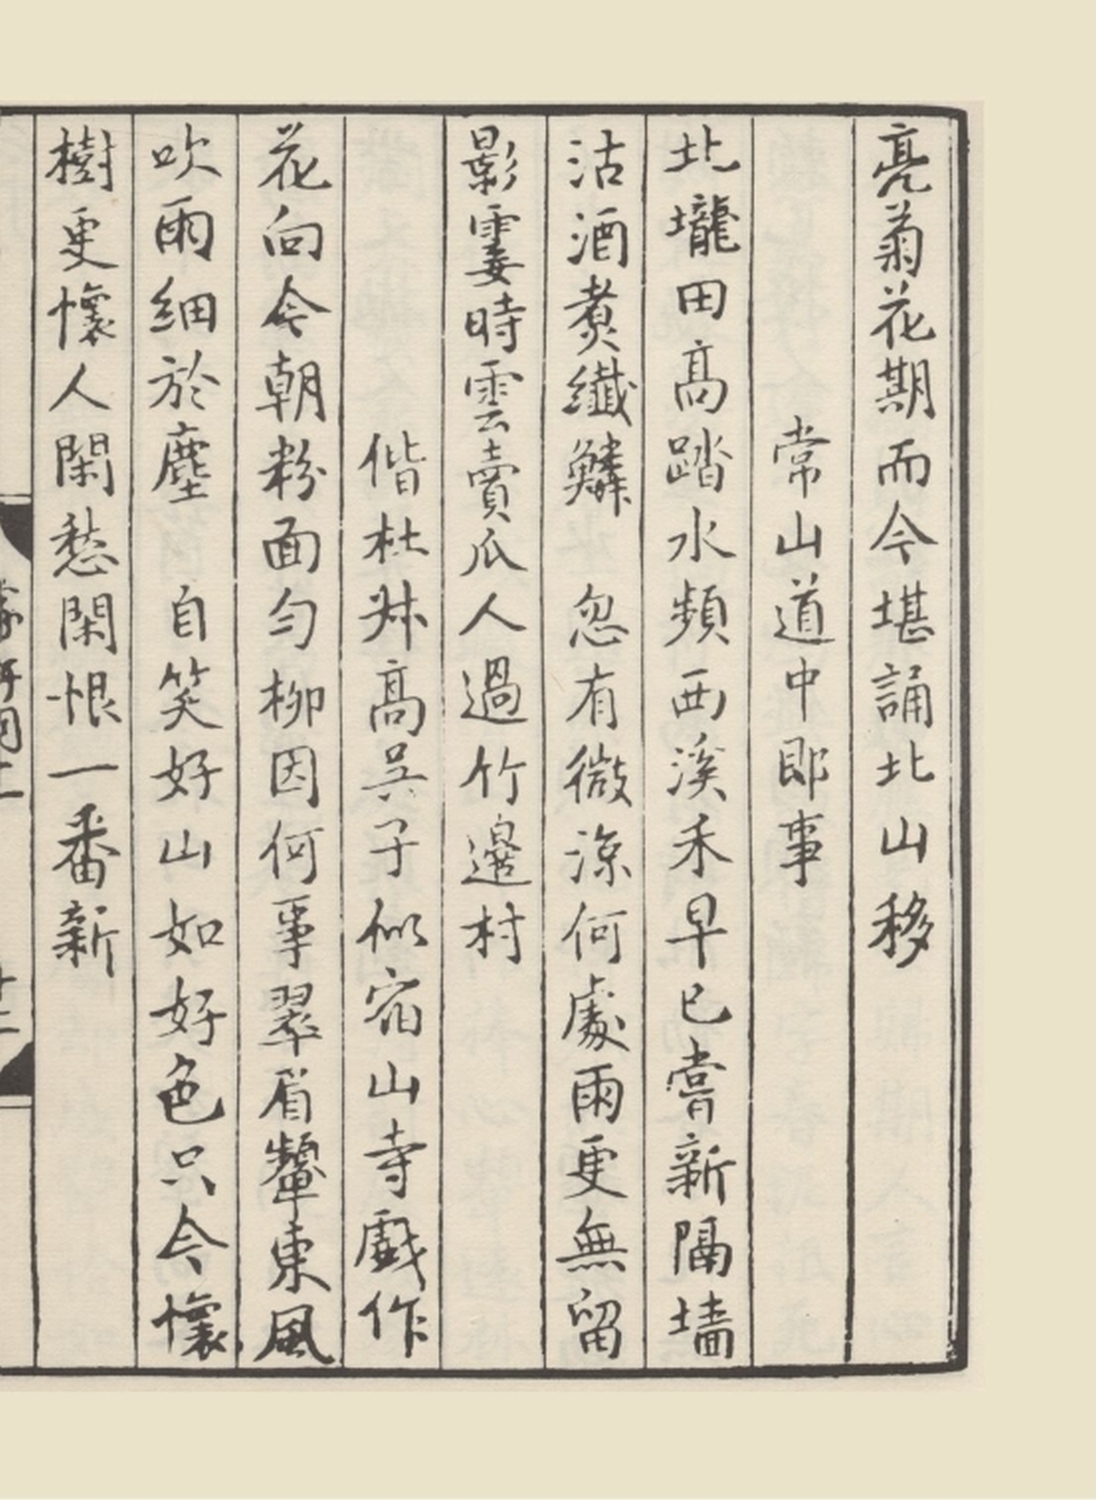 亮菊花期而今堪誦北山移
常山道中即事
北壠田高踏水頻西溪禾早已嘗新隔墻
沽酒煑纖鱗 忽有微涼何處雨更無留
影霎時雲賣瓜人過竹邊村
偕杜叔高吳子似宿山寺戲作
花向今朝粉面勻柳因何事翠眉顰東風
吹雨細於塵 自笑好山如好色只今懷
樹更懷人閑愁閑恨一番新